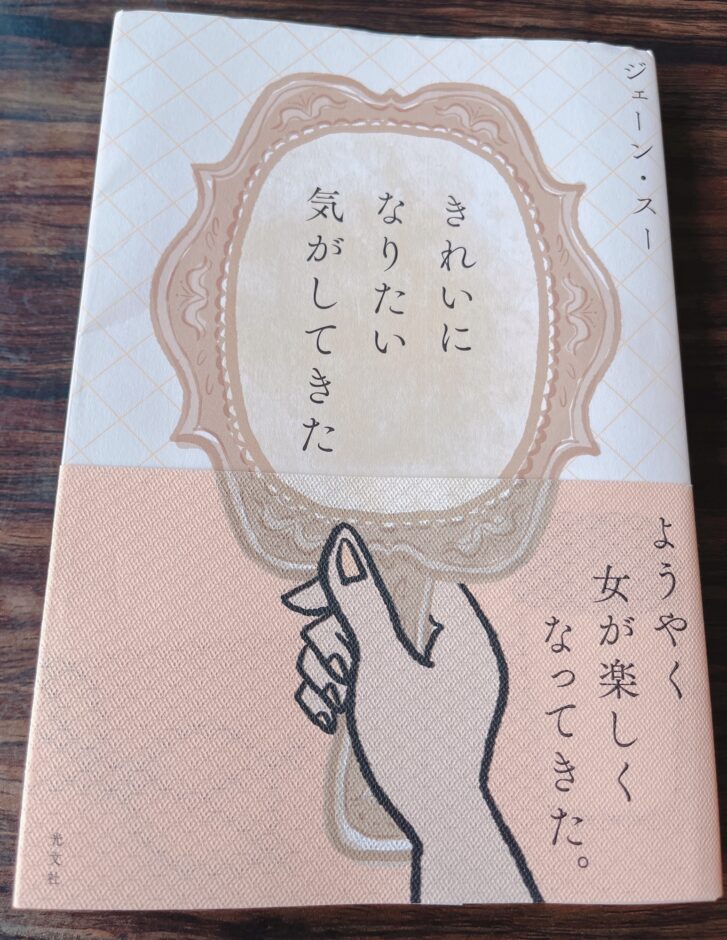 ジェーン・スー
きれいに
なりたい
気がしてきた
ようやく
女が楽しく
なってきた。
光文社